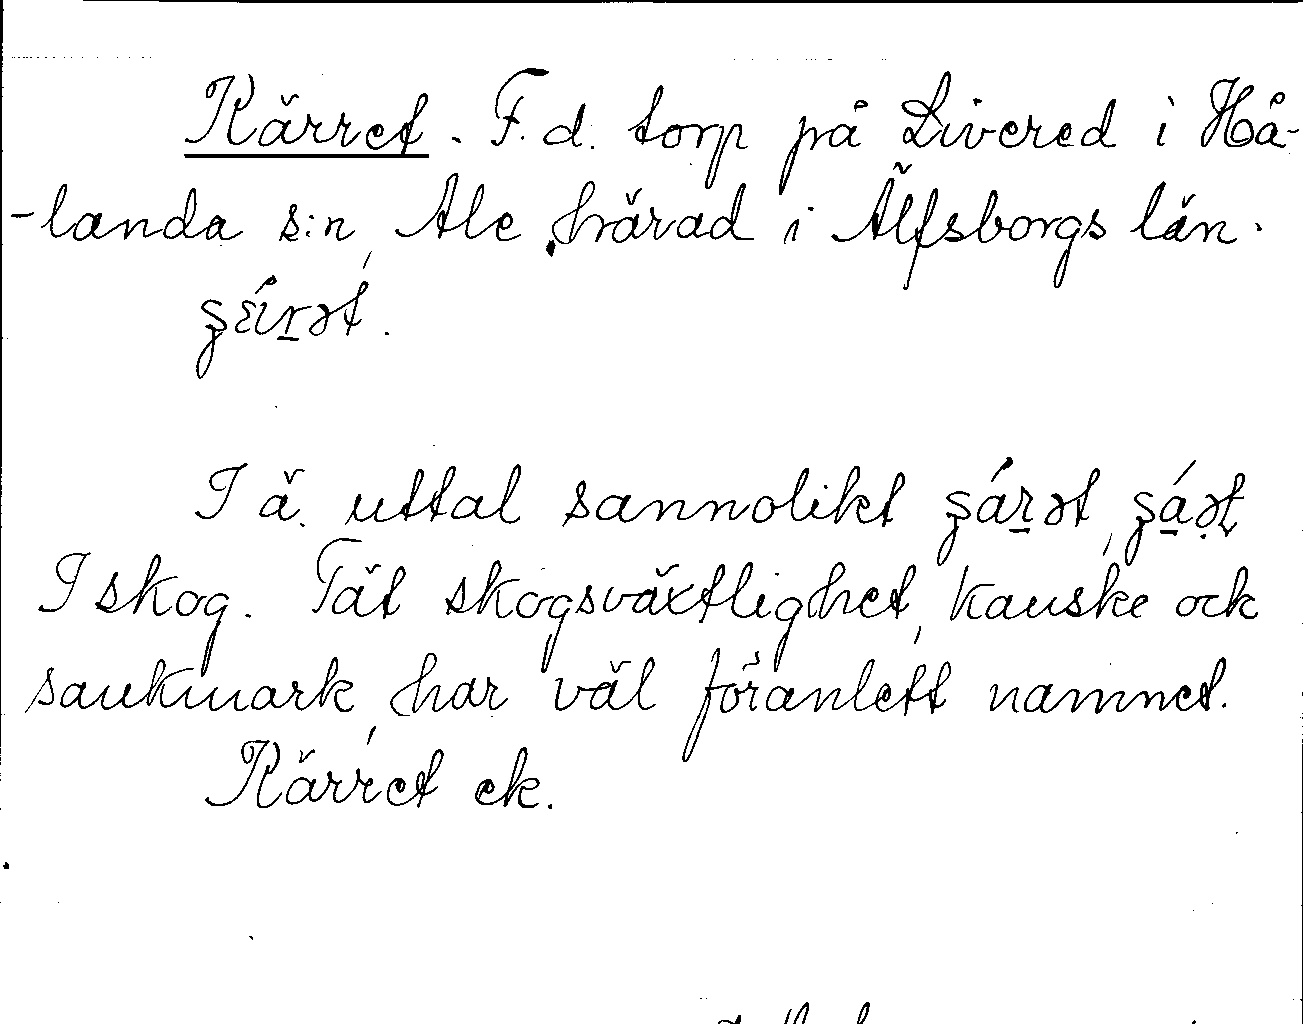 Kärret. F. d. torp på Livered i Hå-
-landa s:n, Ale härad i Älfsborgs län.
ʂǽrət.
I ä. uttal sannolikt ʂárət, ʂáət
I skog. Tät skogsväxtlighet, kanske ock
sankmark, har väl föranlett namnet.
Kärret ek.